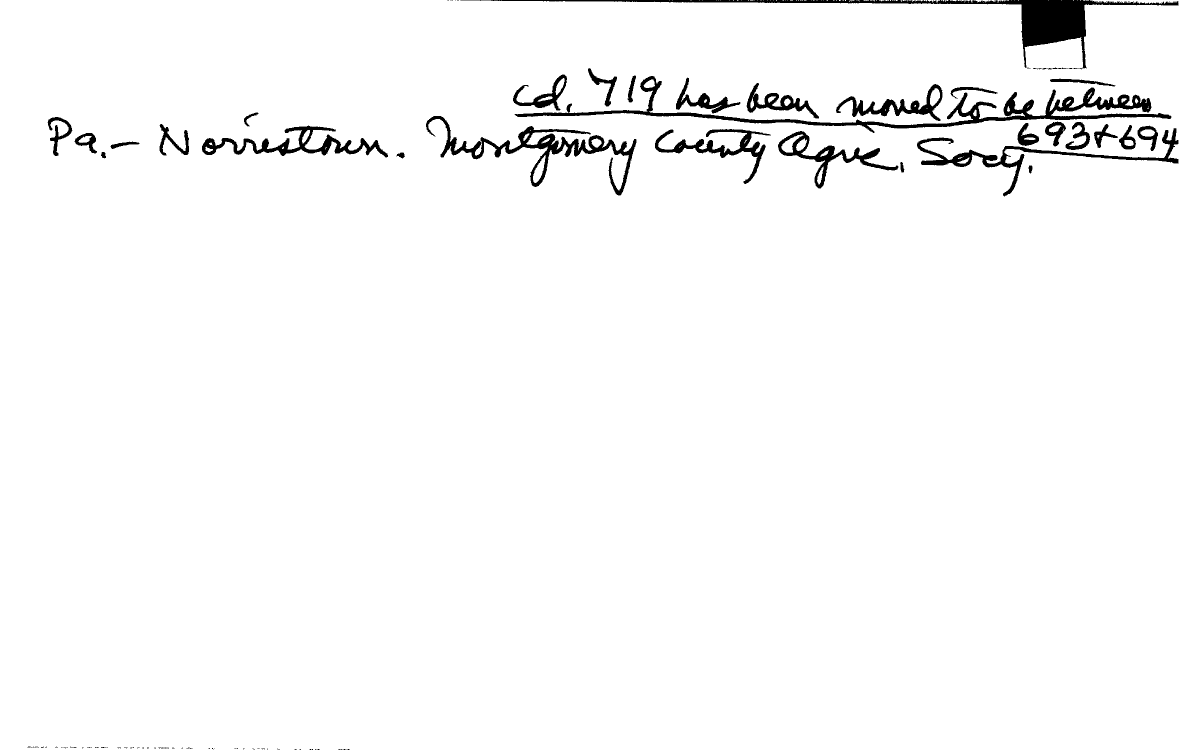 cd. 719 has been moved to be between
693 & 694
Pa. - Norristown. Montgomery County Agric. Socy.